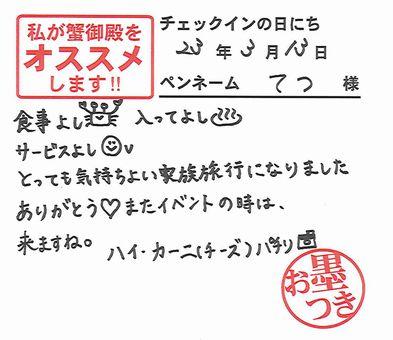 私が蟹御殿を
オススメ
します!!
チェックインの日にち
23年3月13日
ペンネーム てつ 様
食事よし 入ってよし♨
サービスよし☺v
とっても気持ちよい家族旅行になりました
ありがとう♡またイベントの時は、
来ますね。 ハイ・カーニ(チーズ)パチリ
お墨つき